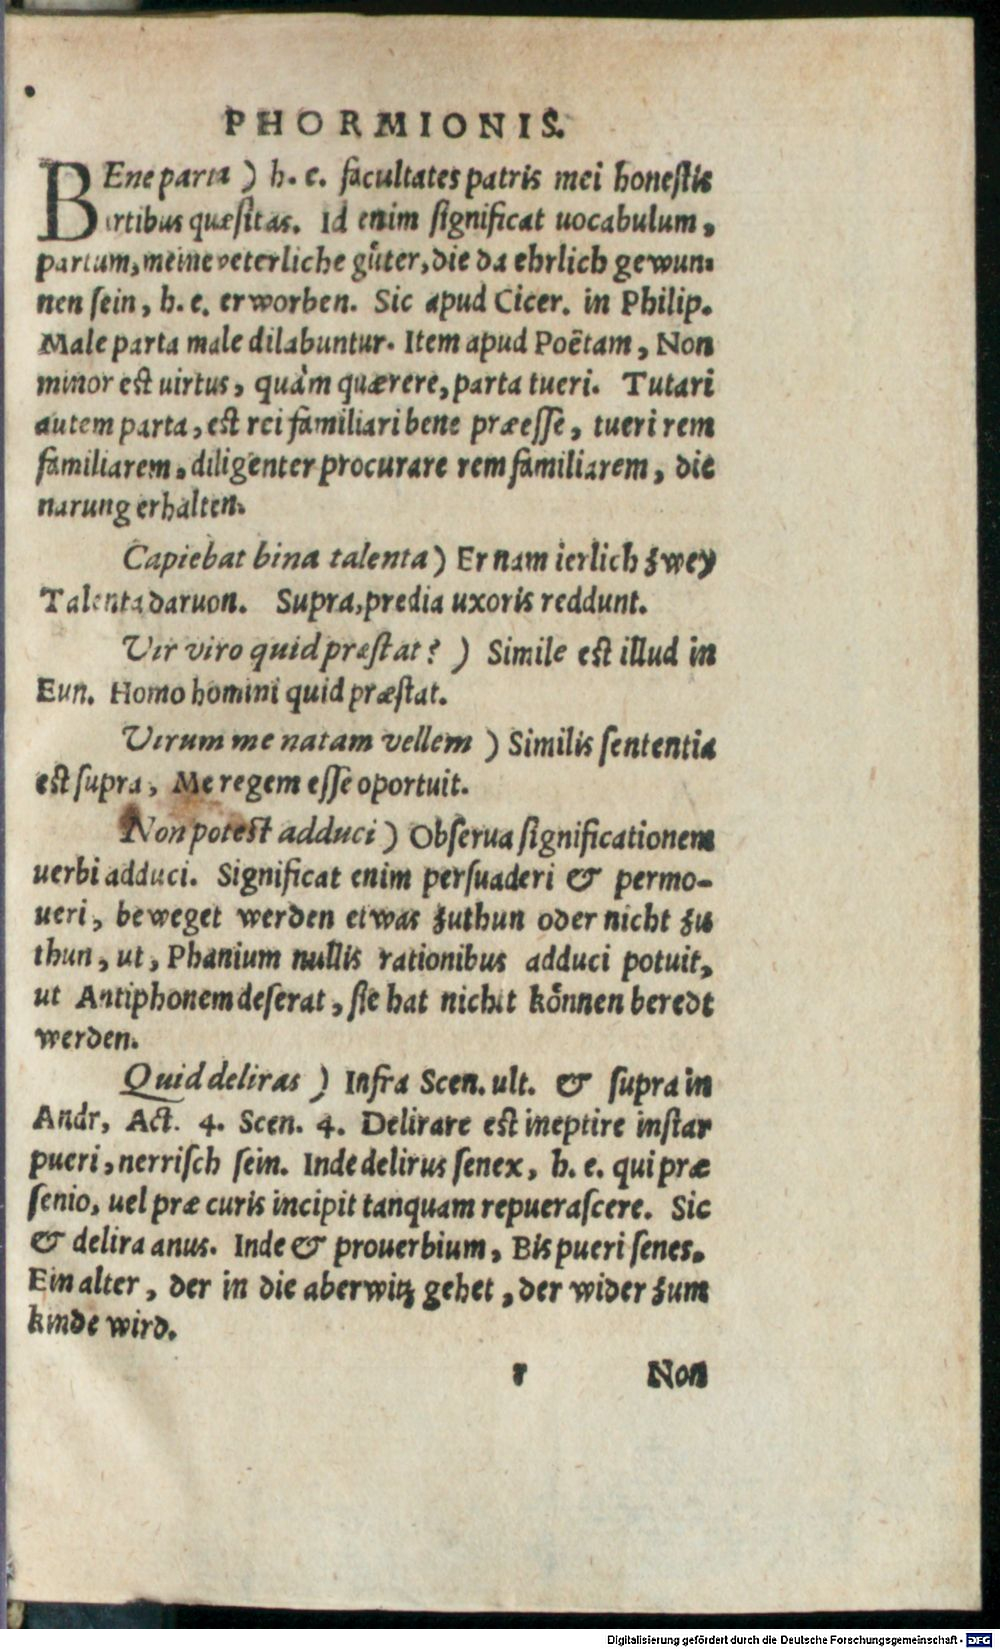 PHORMIONIS.
BEne parta ) h. e. facultates patris mei honestis
artibus quæsitas. Id enim significat uocabulum,
partum, meine veterliche gůter, die da ehrlich gewun-
nen sein, h. e. erworben. Sic apud Cicer. in Philip.
Male parta male dilabuntur. Item apud Poëtam, Non
minor est uirtus, quàm quærere, parta tueri. Tutari
autem parta, est rei familiari bene præesse, tueri rem
familiarem, diligenter procurare rem familiarem, die
narung erhalten.
Capiebat bina talenta ) Er nam ierlich zwey
Talenta daruon. Supra, predia uxoris reddunt.
Vir viro quid præstat? ) Simile est illud in
Eun. Homo homini quid præstat.
Virum me natam vellem ) Similis sententia
est supra, Me regem esse oportuit.
Non potest adduci ) Obserua significationem
uerbi adduci. Significat enim persuaderi & permo-
ueri, beweget werden etwas zuthun oder nicht zu
thun, ut, Phanium nullis rationibus adduci potuit,
ut Antiphonem deserat, sie hat nichit kőnnen beredt
werden.
Quid deliras ) Infra Scen. ult. & supra in
Andr, Act. 4. Scen. 4. Delirare est ineptire instar
pueri, nerrisch sein. Inde delirus senex, h. e. qui præ
senio, uel præ curis incipit tanquam repuerascere. Sic
& delira anus. Inde & prouerbium, Bis pueri senes.
Ein alter, der in die aberwitz gehet, der wider zum
kinde wird.
r Non
Digitalisierung gefördert durch die Deutsche Forschungsgemeinschaft - DFG